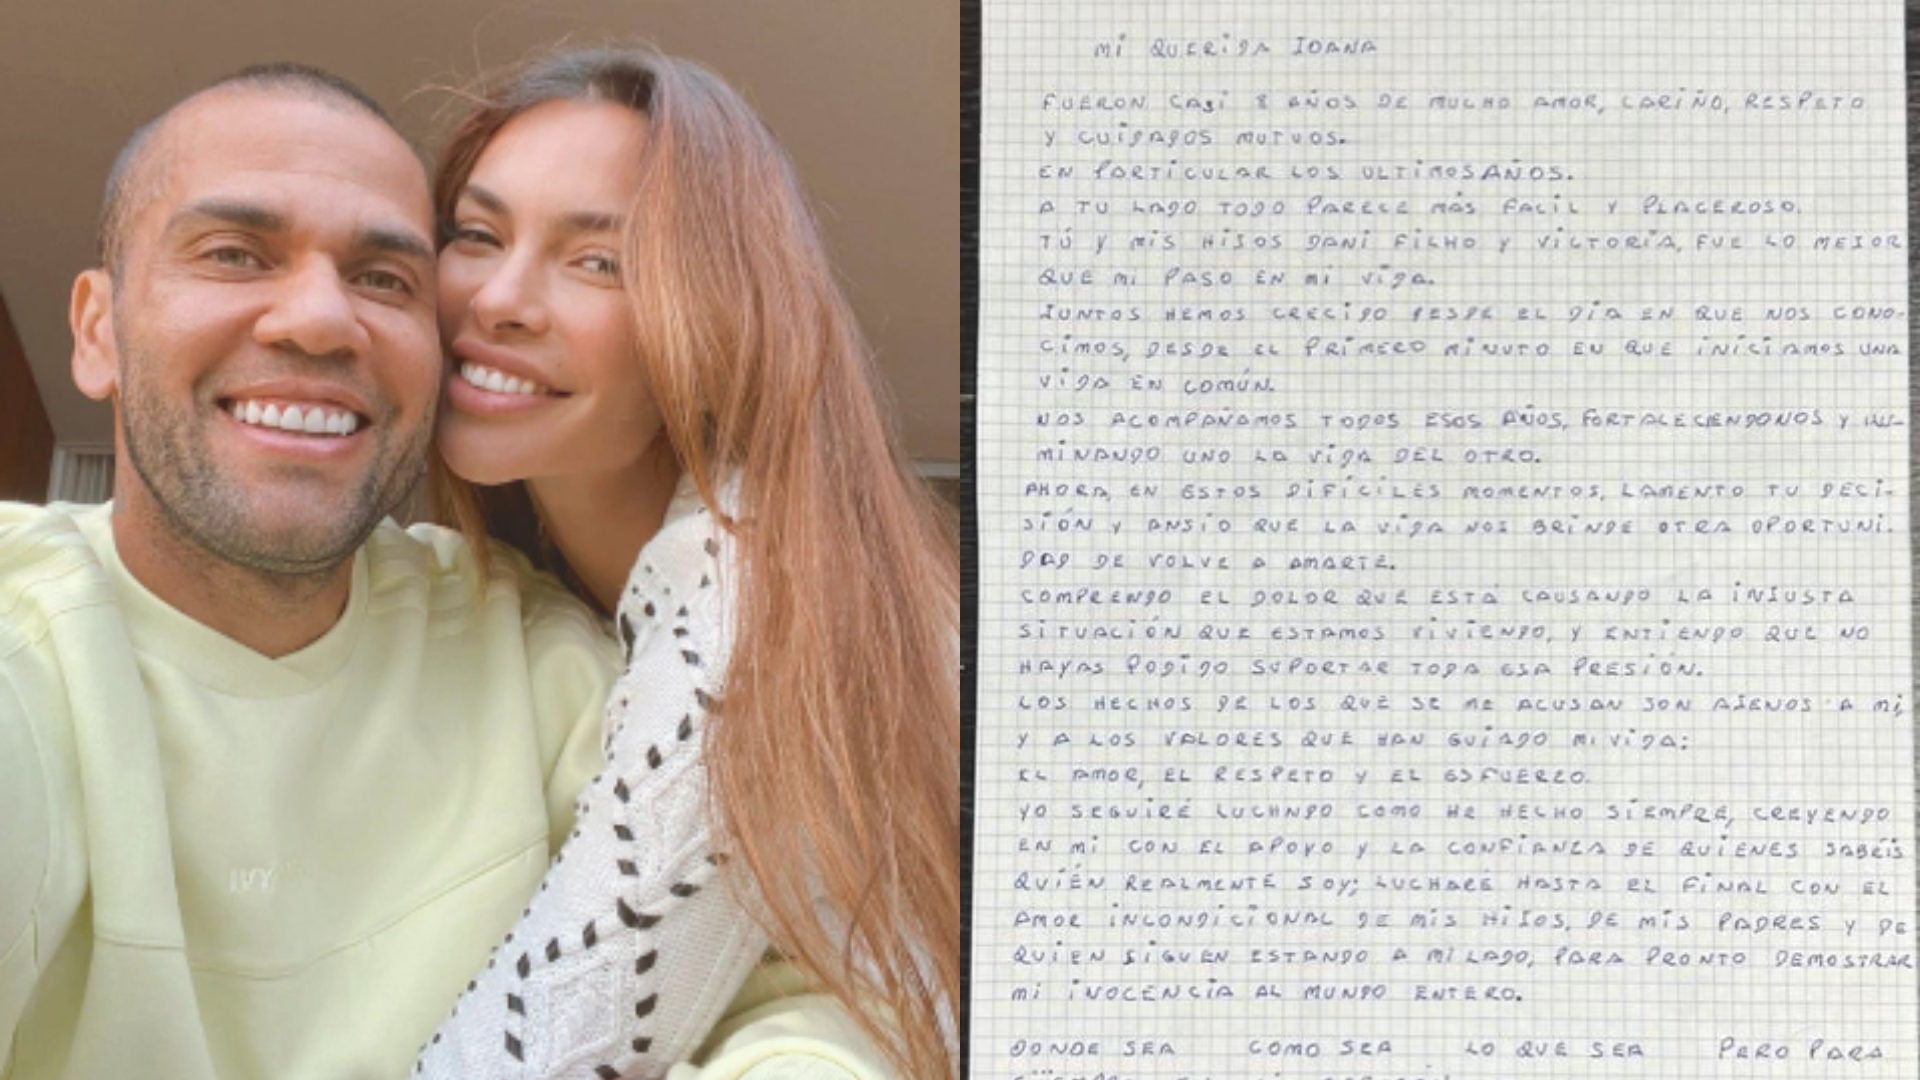 IVY
MI QUERIDA IOANA
FUERON CASI 8 AÑOS DE MUCHO AMOR, CARIÑO, RESPETO
Y CUIDADOS MUTUOS.
EN PARTICULAR LOS ULTIMOS AÑOS.
A TU LADO TODO PARECE MÁS FACIL Y PLACEROSO.
TÚ Y MIS HIJOS DANI FILHO Y VICTORIA, FUE LO MEJOR
QUE MI PASO EN MI VIDA.
JUNTOS HEMOS CRECIDO DESDE EL DÍA EN QUE NOS CONO-
CIMOS, DESDE EL PRIMERO MINUTO EN QUE INICIAMOS UNA
VIDA EN COMÚN.
NOS ACOMPAÑAMOS TODOS ESOS AÑOS, FORTALECIENDONOS Y ILU-
MINANDO UNO LA VIDA DEL OTRO.
AHORA, EN ESTOS DIFÍCILES MOMENTOS, LAMENTO TU DECI-
SIÓN Y ANSIO QUE LA VIDA NOS BRINDE OTRA OPORTUNI-
DAD DE VOLVE A AMARTE.
COMPRENDO EL DOLOR QUE ESTÁ CAUSANDO LA INJUSTA
SITUACIÓN QUE ESTAMOS VIVIENDO, Y ENTIENDO QUE NO
HAYAS PODIDO SUPORTAR TODA ESA PRESIÓN.
LOS HECHOS DE LOS QUE SE ME ACUSAN SON AJENOS A MÍ,
Y A LOS VALORES QUE HAN GUIADO MI VIDA:
EL AMOR, EL RESPETO Y EL ESFUERZO.
YO SEGUIRÉ LUCHNDO COMO HE HECHO SIEMPRE, CREYENDO
EN MI CON EL APOYO Y LA CONFIANZA DE QUIENES SABÉIS
QUIÉN REALMENTE SOY; LUCHARÉ HASTA EL FINAL CON EL
AMOR INCONDICIONAL DE MIS HIJOS, DE MIS PADRES Y DE
QUIEN SIGUEN ESTANDO A MI LADO, PARA PRONTO DEMOSTRAR
MI INOCENCIA AL MUNDO ENTERO.
DONDE SEA COMO SEA LO QUE SEA PERO PARA